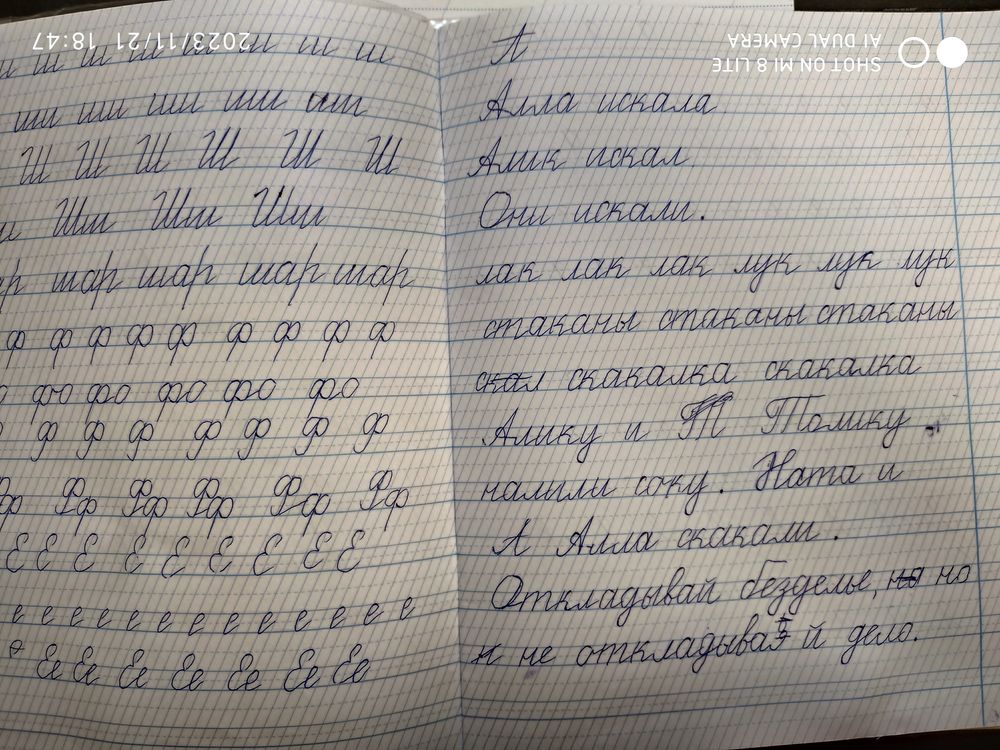 ш ш ш ш ш ш ш ш
ши ши ши ши ши
Ш Ш Ш Ш Ш Ш
Ши Ши Ши
шар шар шар шар
ф ф ф ф ф ф ф ф ф
фо фо фо фо фо
ф ф ф ф ф ф ф
Фф Фф Фф Фф Фф Фф
Е Е Е Е Е Е Е Е Е
е е е е е е е е е е е е е
Ее Ее Ее Ее Ее Ее Ее
Л
Алла искала
Алик искал
Они искали.
лак лак лак лук лук лук
стаканы стаканы стаканы
скал скакалка скакалка
Алику и Т Томику
налили соку. Ната и
Л Алла скакали.
Откладывай безделье, на но
н не откладывай дело.
SHOT ON MI 8 LITE
AI DUAL CAMERA
2023/11/21 18:47